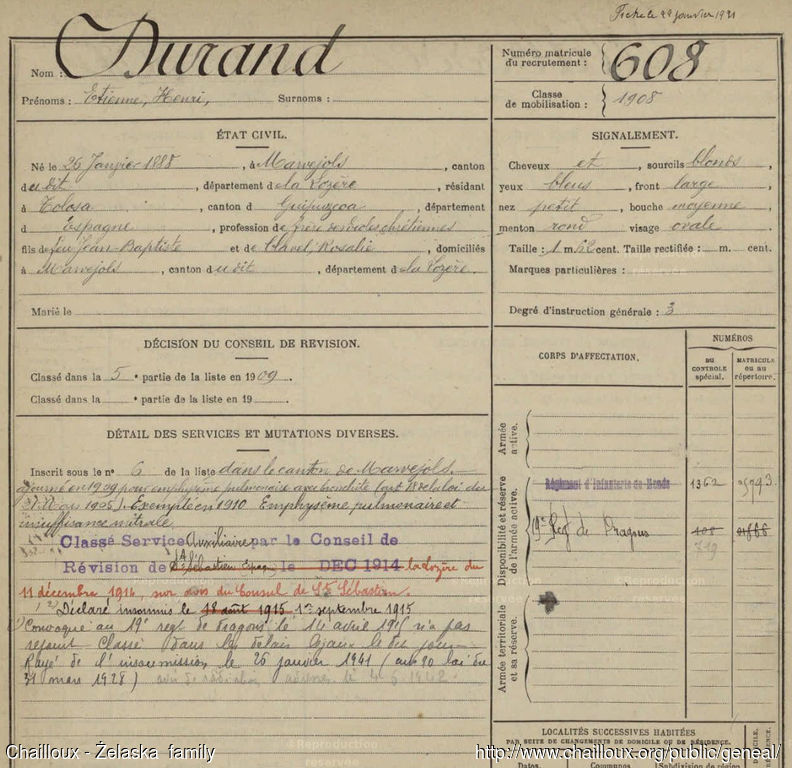 Fiche le 22 janvier 1921
Nom : Durand
Prénoms : Etienne, Henri, Surnoms :
Numéro matricule du recrutement : 608
Classe de mobilisation : 1908
ÉTAT CIVIL.
Né le 26 Janvier 1888, à Marvejols, canton
du dit, département de la Lozère, résidant
à Tolosa, canton d Guipuzcoa, département
d Espagne, profession de frère des écoles chrétiennes
fils de feu Jean Baptiste et de Clavel, Rosalie, domiciliés
à Marvejols, canton du dit, département de la Lozère.
Marié le
SIGNALEMENT.
Cheveux et, sourcils blonds,
yeux bleus, front large,
nez petit, bouche moyenne
menton rond visage ovale.
Taille : 1 m. 62 cent. Taille rectifiée : m. cent.
Marques particulières :
Degré d'instruction générale : 3
DÉCISION DU CONSEIL DE REVISION.
Classé dans la 5e partie de la liste en 1909.
Classé dans la e partie de la liste en 19
DÉTAIL DES SERVICES ET MUTATIONS DIVERSES.
Inscrit sous le n° 6 de la liste dans le canton de Marvejols.
ajourné en 1909 pour emphysème pulmonaire avec bronchite (art 18 de la loi du
21 Mars 1905). Exempté en 1910 Emphysème pulmonaire et
insuffisance mitrale
Classé Service Auxiliaire par le Conseil de
Révision de St Sébastien Espag. le DEC 1914 la Lozère du
11 décembre 1914, sur avis du Consul de St Sébastien.
Déclaré insoumis le 18 août 1915 1er septembre 1915
Convoqué au 19e regt de dragons le 14 avril 1915 n'a pas
rejoint Classé dans les délais légaux le dit jour
Rayé de l'insoumission le 26 janvier 1941 (art 90 loi du
31 mars 1928) avis de radiation adressé le 4-6-1942
CORPS D'AFFECTATION.
NUMÉROS
DU CONTROLE spécial.
MATRICULE ou au répertoire.
Armée active.
Disponibilité et réserve de l'armée active.
Régiment d'Infanterie de Mende 1362
19e Reg. de Dragons 719
Armée territoriale et sa réserve.
LOCALITÉS SUCCESSIVES HABITÉES
PAR SUITE DE CHANGEMENTS DE DOMICILE OU DE RÉSIDENCE.
Dates. Communes. Subdivision de région
Reproduction réservée
Chailloux - Żelaska family
http://www.chailloux.org/public/geneal/